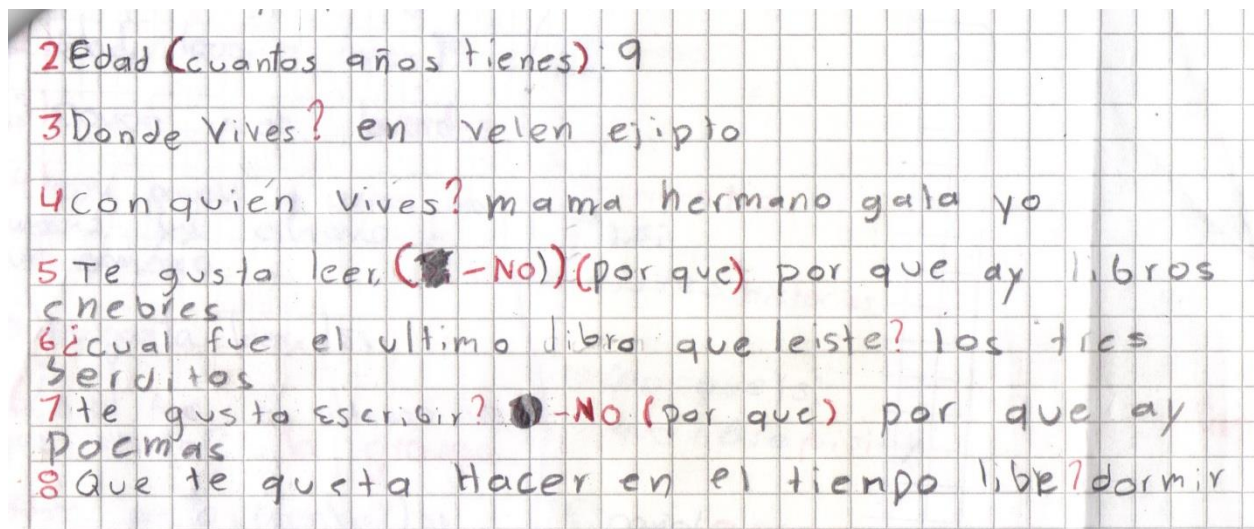 2 Edad (cuantos años tienes): 9
3 Donde vives? en velen ejipto
4 con quién vives? mama hermano gala yo
5 Te gusta leer, ( -No)) (por que) por que ay libros
chebres
6 ¿cual fue el ultimo libro que leiste? los tres
serditos
7 te gusta escribir? -No (por que) por que ay
poemas
8 Que te queta Hacer en el tienpo libe? dormir